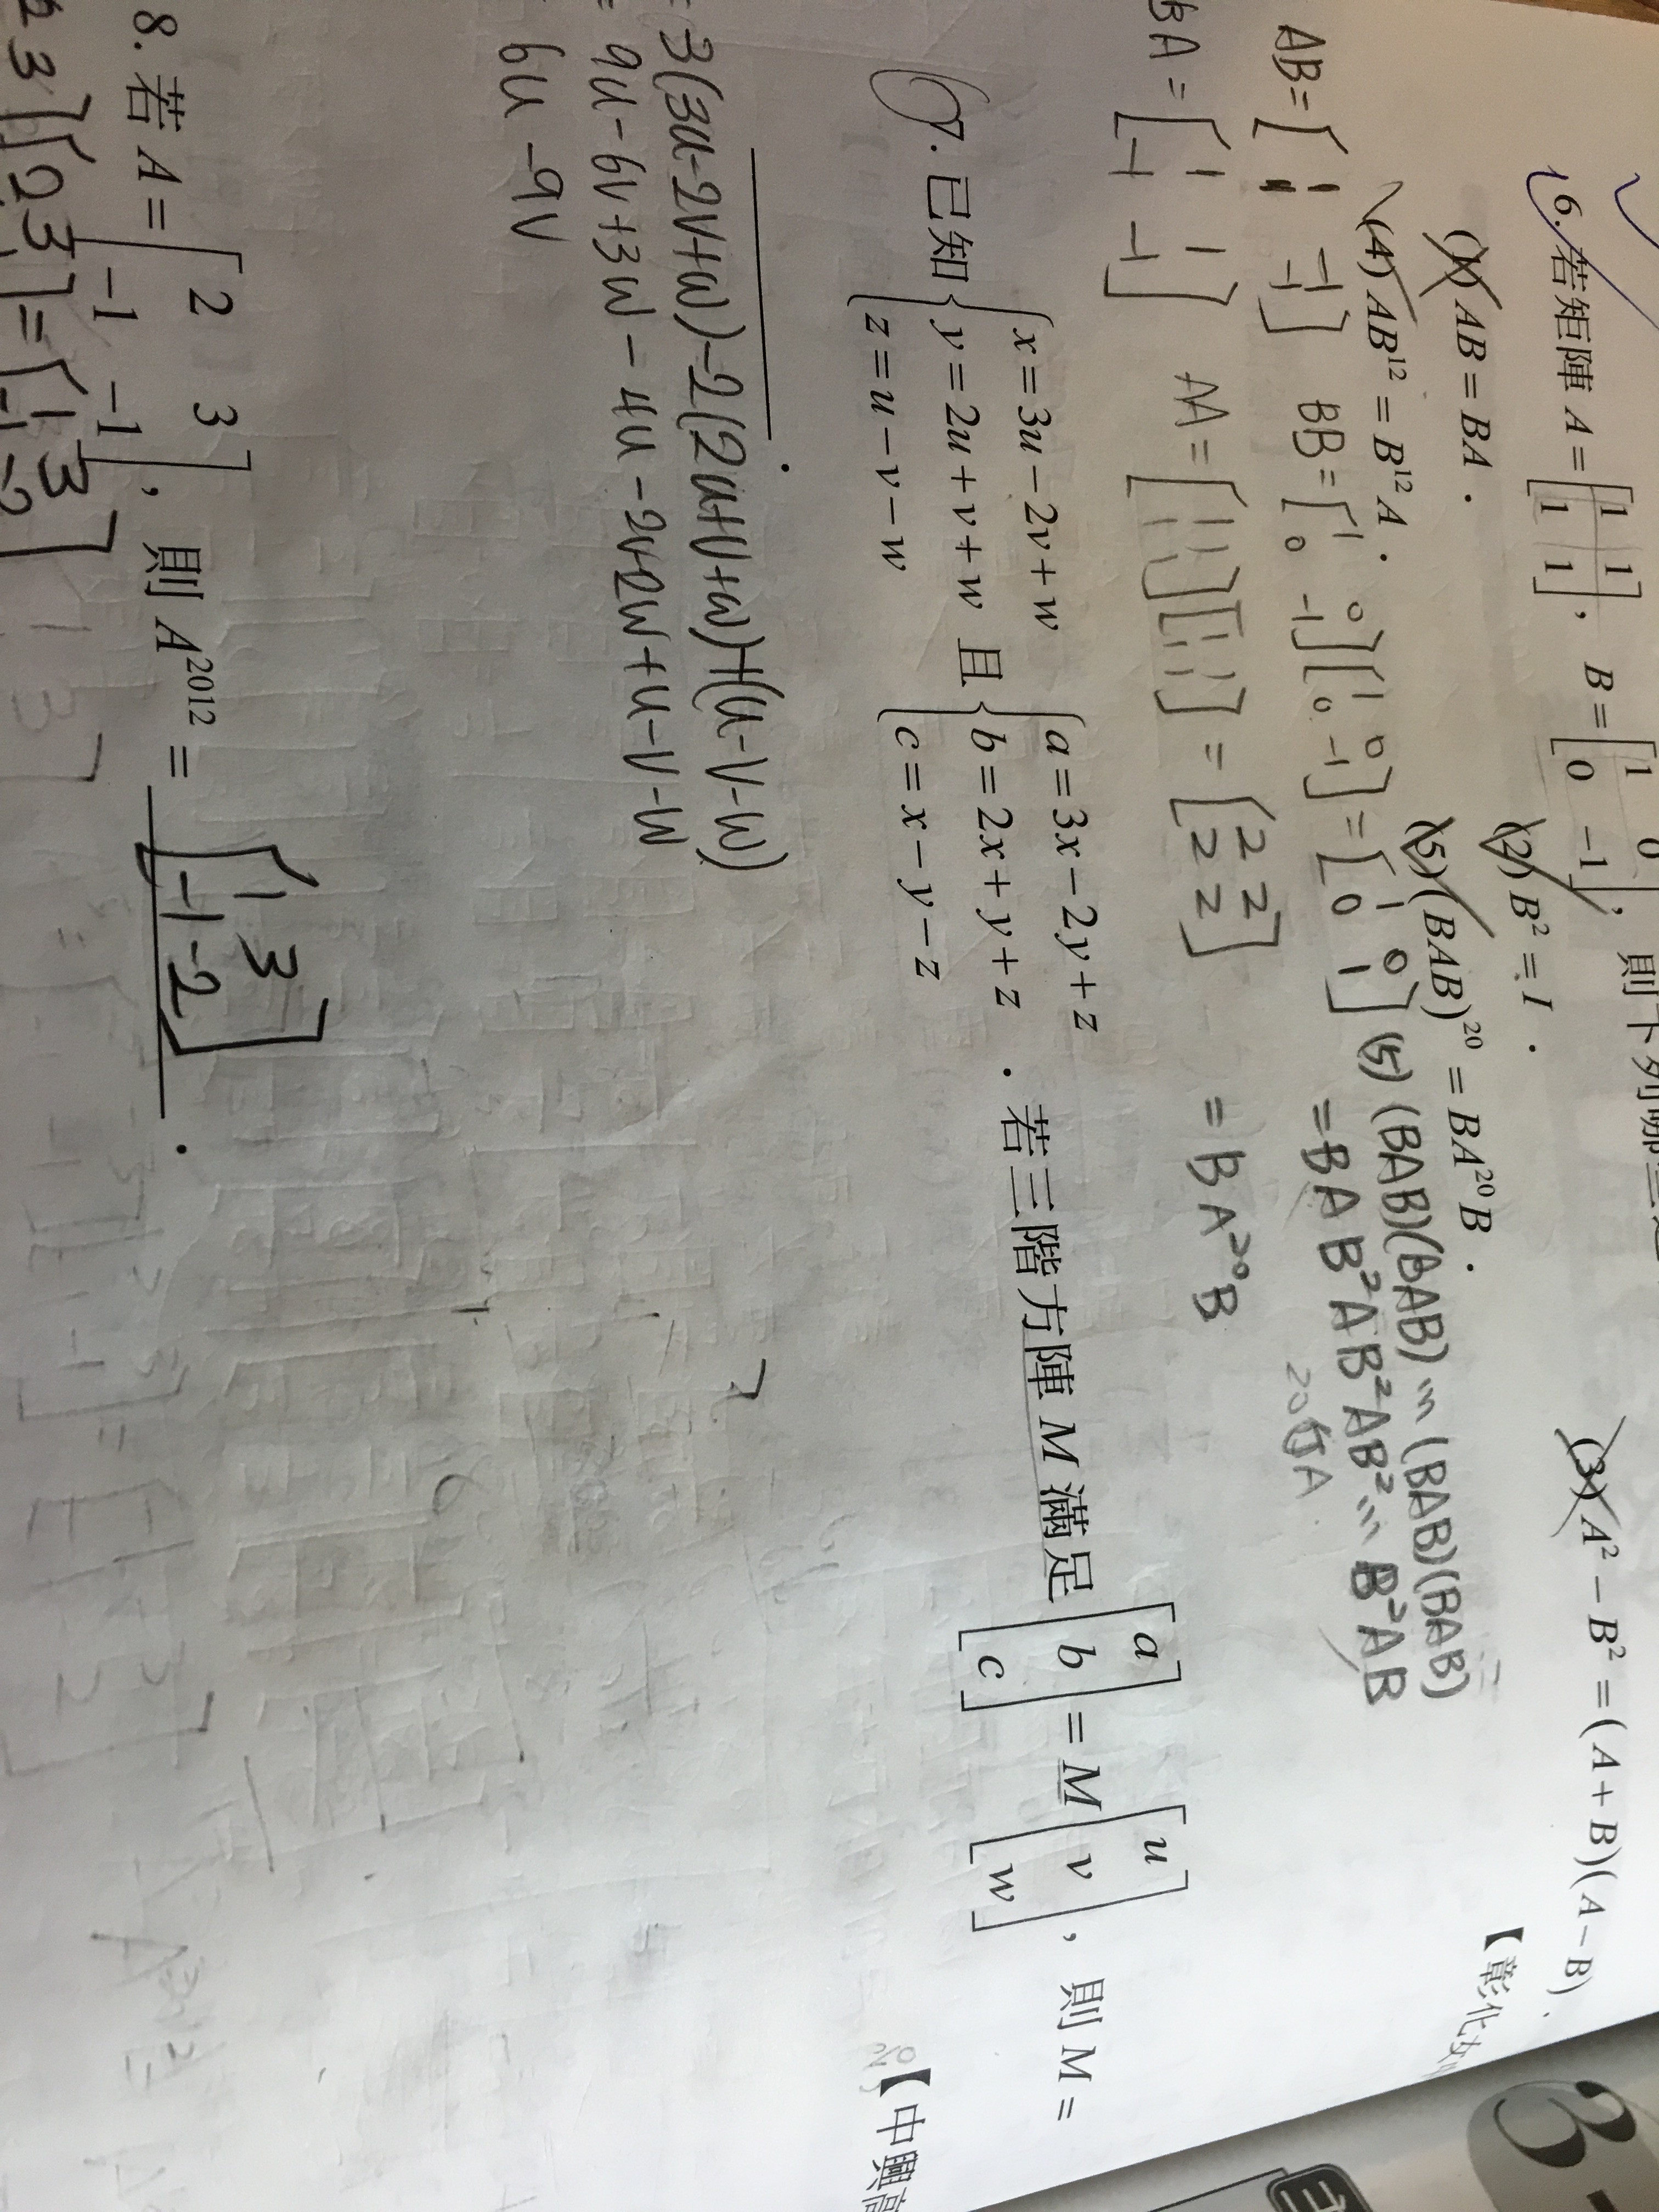 6. 若矩陣 A = [1 1; 1 1], B = [1 0; 0 -1], 則下列哪些
(1) AB = BA. (2) B² = I. (3) A² - B² = (A + B)(A - B).
(4) AB¹² = B¹²A. (5) (BAB)²⁰ = BA²⁰B.
【彰化女
AB = [1 -1; 1 -1] BB = [1 0; 0 -1][1 0; 0 -1] = [1 0; 0 1] (5) (BAB)(BAB)…(BAB)(BAB)
= BAB²AB²AB²…B²AB
20個A
BA = [1 1; -1 -1] AA = [1 1; 1 1][1 1; 1 1] = [2 2; 2 2] = BA²⁰B
7. 已知 { x = 3u - 2v + w
y = 2u + v + w
z = u - v - w
且 { a = 3x - 2y + z
b = 2x + y + z
c = x - y - z
. 若三階方陣 M 滿足 [a; b; c] = M [u; v; w], 則 M =
.
【中興高
= 3(3u-2v+w)-2(2u+v+w)+(u-v-w)
= 9u-6v+3w-4u-2v+2w+u-v-w
6u -9v
8. 若 A = [2 3; -1 -1], 則 A²⁰¹² = [1 3; -1 -2].